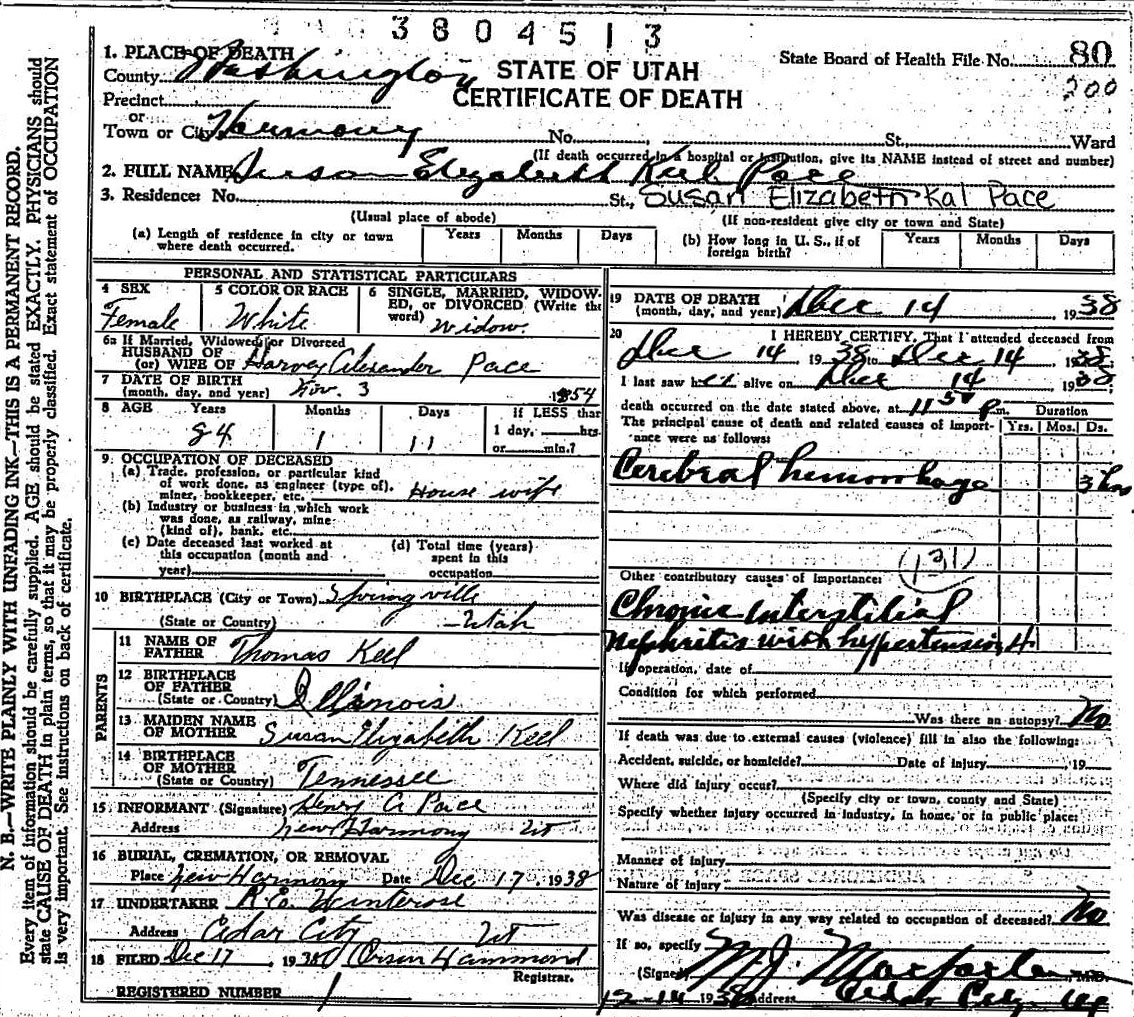 3804513
1. PLACE OF DEATH
County Washington
STATE OF UTAH
CERTIFICATE OF DEATH
State Board of Health File No. 80
200
Precinct
or
Town or City Harmony No. St. Ward
(If death occurred in a hospital or institution, give its NAME instead of street and number)
2. FULL NAME Susan Elizabeth Keel Pace
3. Residence: No. St., Susan Elizabeth Kal Pace
(Usual place of abode) (If non-resident give city or town and State)
(a) Length of residence in city or town where death occurred. Years Months Days
(b) How long in U. S., if of foreign birth? Years Months Days
PERSONAL AND STATISTICAL PARTICULARS
4 SEX Female
5 COLOR OR RACE White
6 SINGLE, MARRIED, WIDOWED, or DIVORCED (Write the word) Widow
6a If Married, Widowed, or Divorced
HUSBAND OF
(or) WIFE OF Harvey Alexander Pace
7 DATE OF BIRTH
(month, day, and year) Nov. 3 1854
8 AGE Years Months Days If LESS than
84 1 11 1 day, hrs.
or min.?
9 OCCUPATION OF DECEASED
(a) Trade, profession, or particular kind
of work done, as engineer (type of),
miner, bookkeeper, etc. House wife
(b) Industry or business in which work
was done, as railway, mine
(kind of), bank, etc.
(c) Date deceased last worked at
this occupation (month and
year)
(d) Total time (years)
spent in this
occupation
10 BIRTHPLACE (City or Town) Springville
(State or Country) -Utah
PARENTS
11 NAME OF
FATHER Thomas Keel
12 BIRTHPLACE
OF FATHER
(State or Country) Illinois
13 MAIDEN NAME
OF MOTHER Susan Elizabeth Keel
14 BIRTHPLACE
OF MOTHER
(State or Country) Tennessee
15 INFORMANT (Signature) Henry A Pace
Address New Harmony Ut
16 BURIAL, CREMATION, OR REMOVAL
Place New Harmony Date Dec 17, 1938
17 UNDERTAKER
Address Cedar City Ut
18 FILED Dec 17, 1938 Orson Hammond
Registrar.
REGISTERED NUMBER 1
19 DATE OF DEATH
(month, day, and year) Dec 14 1938
20 I HEREBY CERTIFY, That I attended deceased from
Dec 14 1938 to Dec 14, 1938
I last saw her alive on Dec 14 1938
death occurred on the date stated above, at 11 50 P m. Duration
The principal cause of death and related causes of importance were as follows: Yrs. Mos. Ds.
Cerebral hemorrhage 3 hrs
131
Other contributory causes of importance:
Chronic interstitial
nephritis with hypertension 4
If operation, date of
Condition for which performed
Was there an autopsy? No
If death was due to external causes (violence) fill in also the following:
Accident, suicide, or homicide? Date of injury , 19
Where did injury occur?
(Specify city or town, county and State)
Specify whether injury occurred in industry, in home, or in public place:
Manner of injury
Nature of injury
Was disease or injury in any way related to occupation of deceased? No
If so, specify
(Signed) M.J. Macfarlane M.D.
12-14 1938 Address Cedar City Ut
N. B.—WRITE PLAINLY WITH UNFADING INK—THIS IS A PERMANENT RECORD.
Every item of information should be carefully supplied. AGE should be stated EXACTLY. PHYSICIANS should
state CAUSE OF DEATH in plain terms, so that it may be properly classified. Exact statement of OCCUPATION
is very important. See instructions on back of certificate.